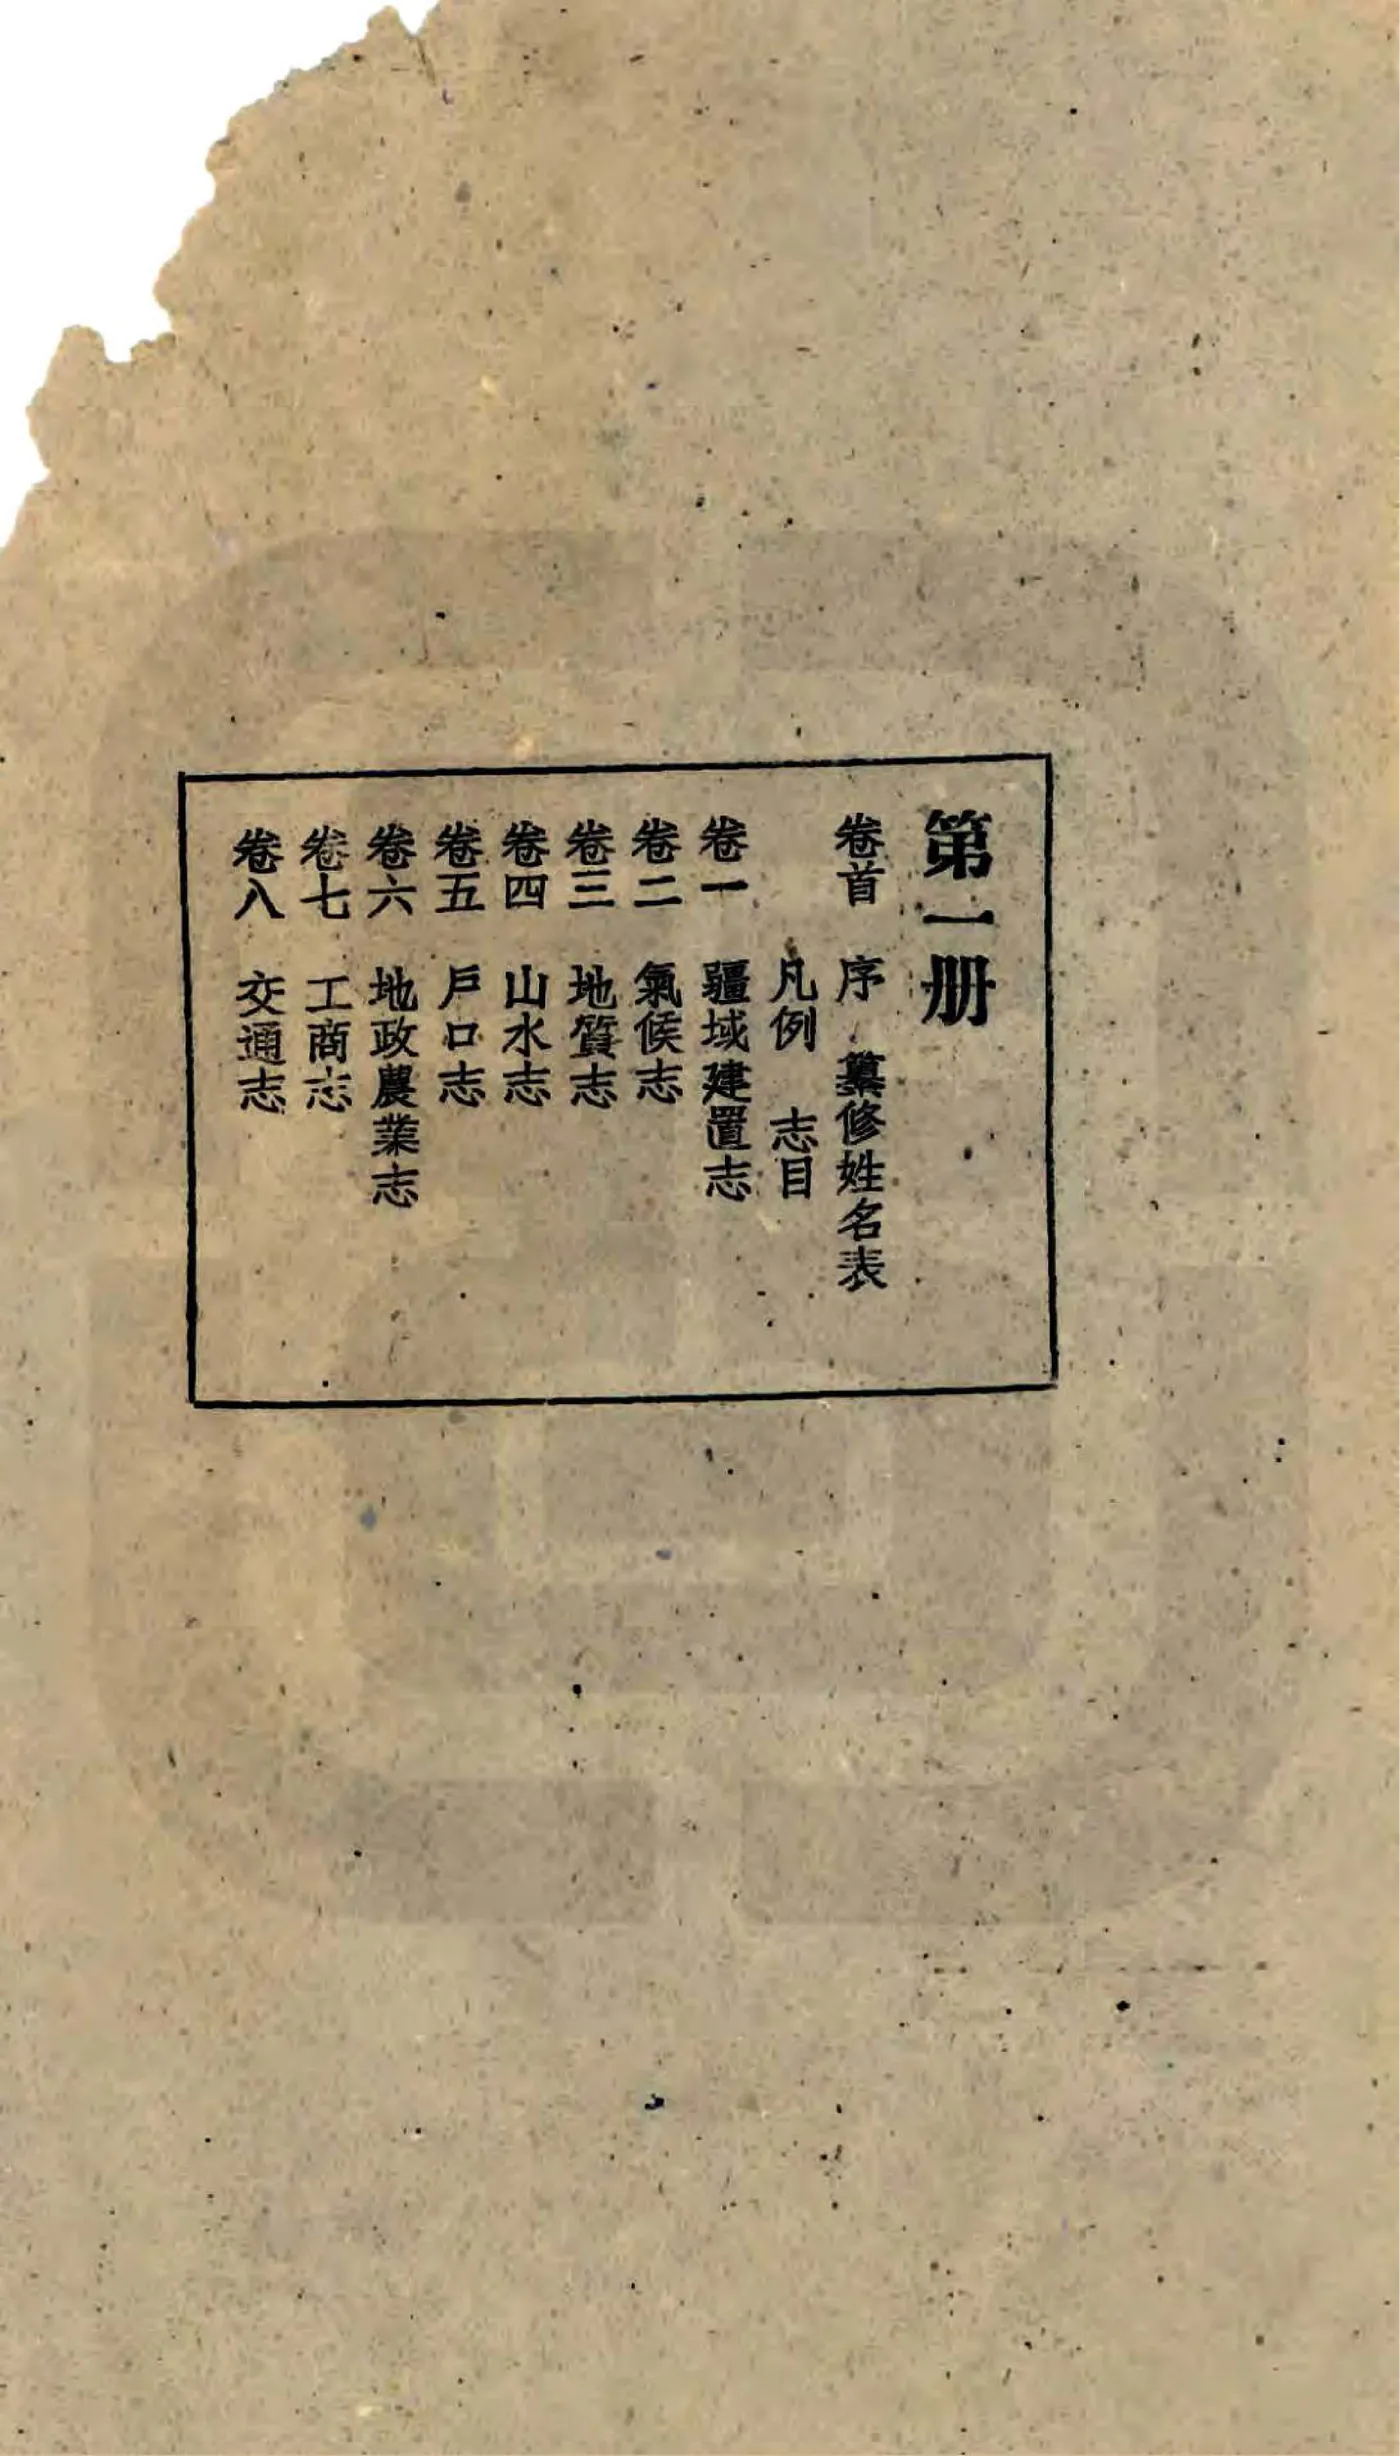 第一册
卷首 序 纂修姓名表
凡例 志目
卷一 疆域建置志
卷二 氣候志
卷三 地質志
卷四 山水志
卷五 戶口志
卷六 地政農業志
卷七 工商志
卷八 交通志